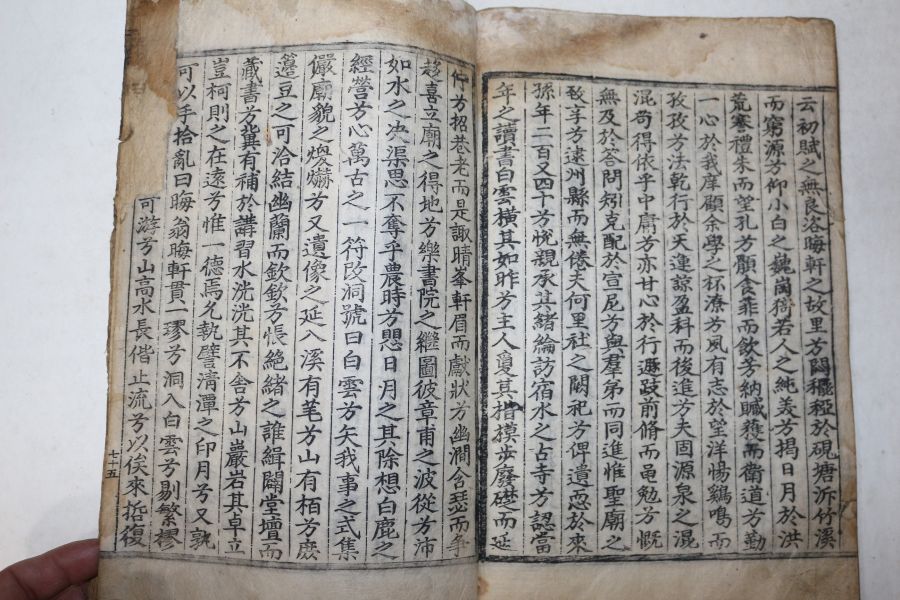 云初賦之無良洛晦軒之故里兮闢穮稏於硯塘泝竹溪
而窮源兮仰小白之巍崗猗若人之純美兮揭日月於洪
荒蹇禮朱而望孔兮顥食菲而飮芳納贓獲而衛道兮勤
一心於我庠顧余學之杯潦兮風有志於望洋惕鷄鳴而
孜孜兮法乾行於天運諒盈科而後進兮夫固源泉之混
混苟得依乎中庸兮亦甘心於行遯跂前脩而黽勉兮慨
無及於答問矧克配於宣尼兮與羣弟而同進惟聖廟之
致享兮遠州縣而無倦天何里社之闕祀兮俾遺忘於來
孫年二百又四十兮恍親承其緖綸訪宿水之古寺兮認當
年之讀書白雲橫其如昨兮主人䆕其楷摸步廢礎而延
佇兮招巷老而是諏晴峯軒眉而獻狀兮幽澗含瑟而爭
趍喜立廟之得地兮樂書院之繼圖彼章甫之波從兮沛
如水之决渠思不奪乎農時兮愳日月之其除想白鹿之
經營兮心萬古之一符改洞號曰白雲兮矢我事之式集
儼廟貌之燠爀兮又遺像之延入溪有芼兮山有栢兮庶
籩豆之可洽結幽蘭而欽欽兮悵絕緖之誰緝闢堂壇而
藏書兮冀有補於講習水洸洸其不舍兮山巖岩其卓立
豈柯則之在遠兮惟一德焉允執譬淸潭之印月兮又孰
可以手拾亂曰晦翁晦軒貫一璆兮洞入白雲兮剔繁樛
可游兮山高水長偕止流兮以俟來哲復
七十五